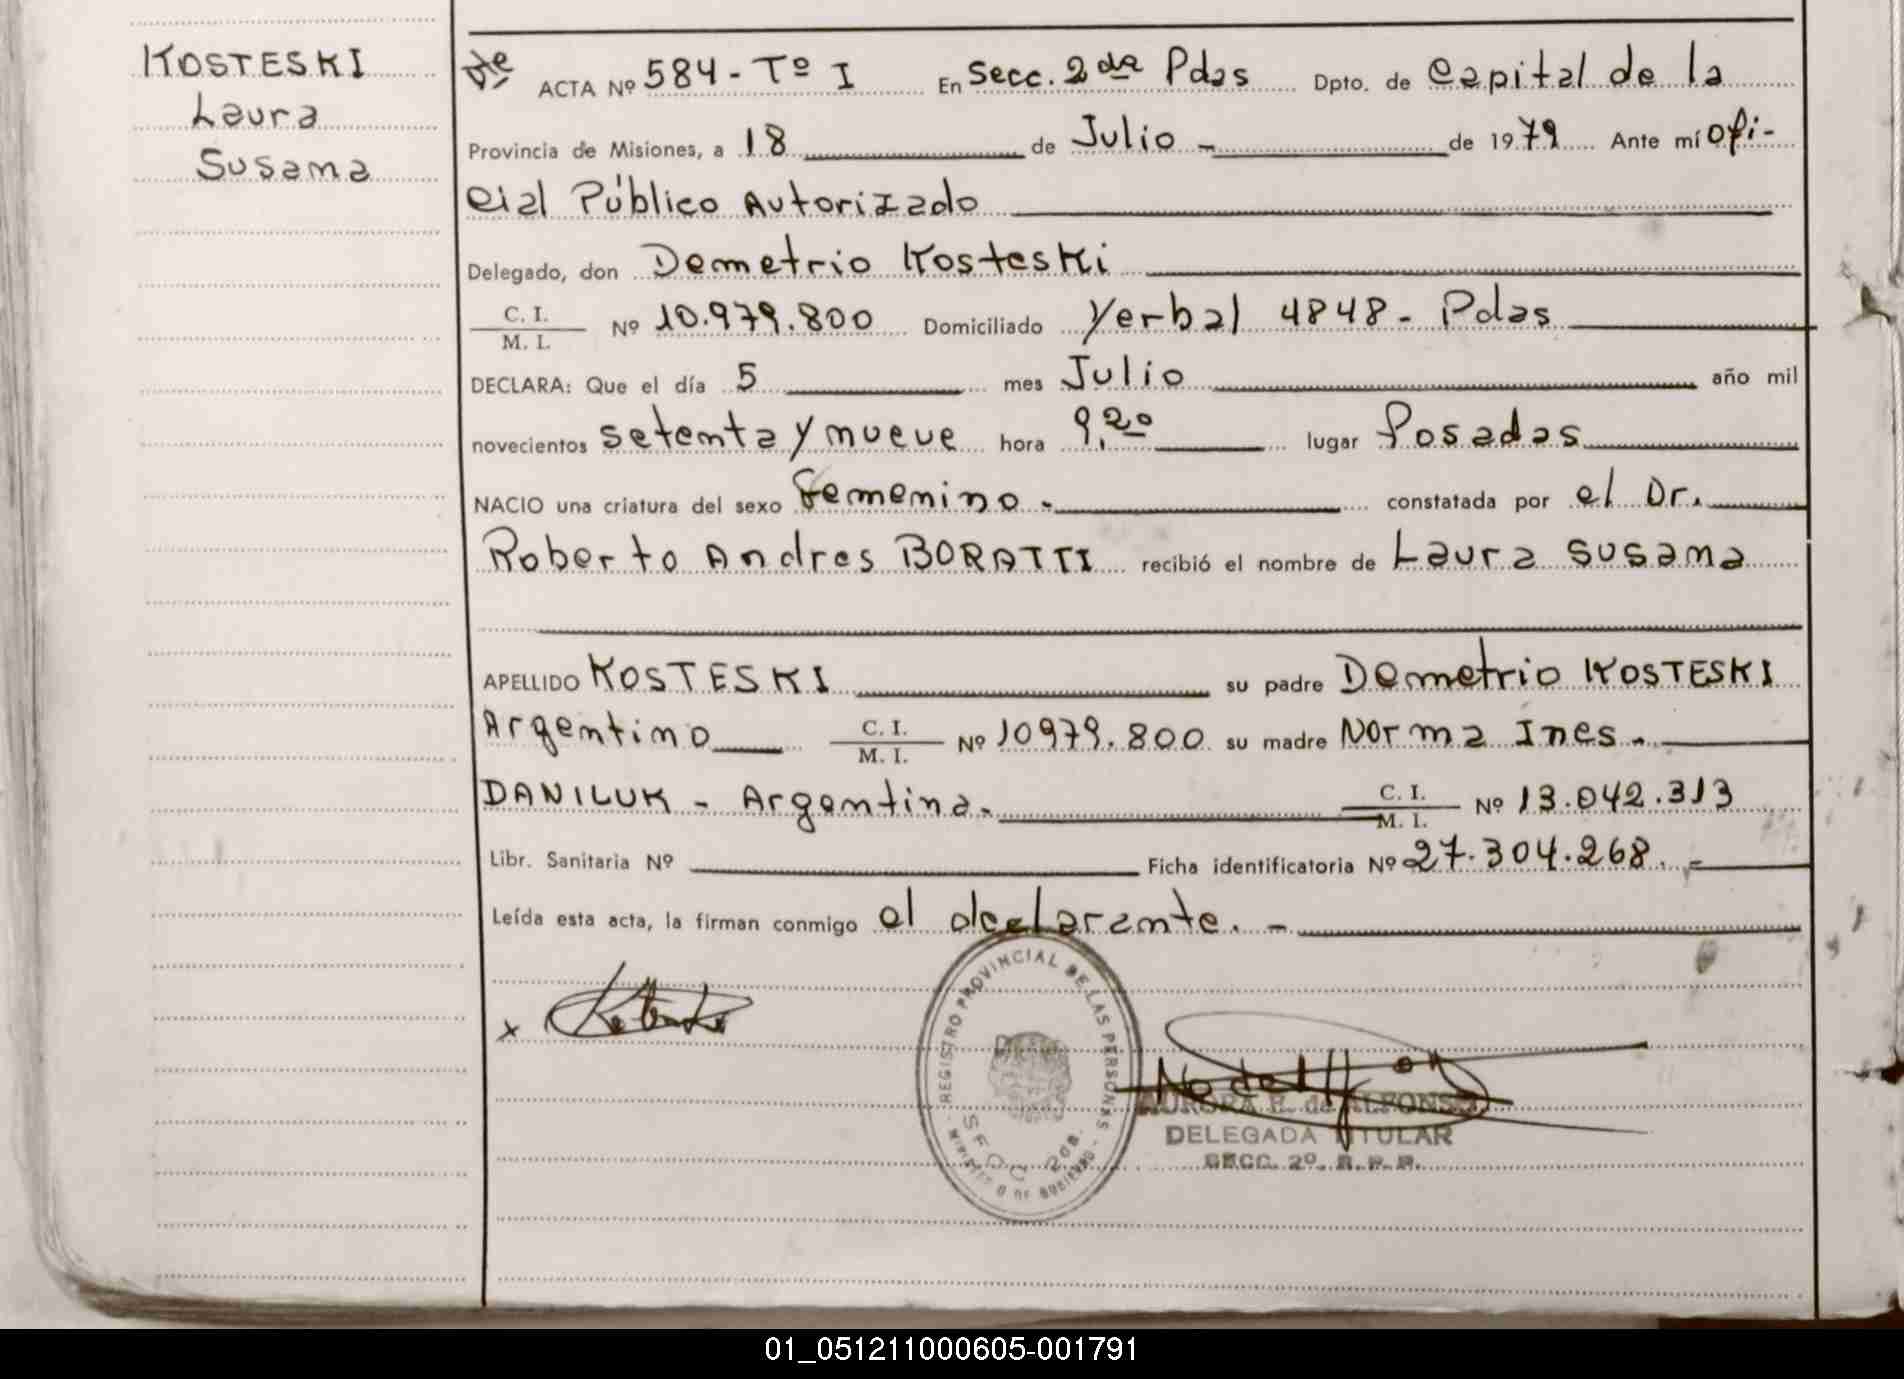 KOSTESKI
Laura
Susana
ACTA Nº 584 - Tº I En Secc. 2da Pdas Dpto. de Capital de la
Provincia de Misiones, a 18 de Julio - de 1979 Ante mí Ofi-
cial Público Autorizado
Delegado, don Demetrio Kosteski
C. I.
M. I. Nº 10.979.800 Domiciliado Yerbal 4848 - Pdas
DECLARA: Que el día 5 mes Julio año mil
novecientos setenta y nueve hora 9,20 lugar Posadas
NACIO una criatura del sexo femenino - constatada por el Dr.
Roberto Andres BORATTI recibió el nombre de Laura Susana
APELLIDO KOSTESKI su padre Demetrio KOSTESKI
Argentino C. I.
M. I. Nº 10979.800 su madre Norma Ines -
DANILUK - Argentina - C. I.
M. I. Nº 13.042.313
Libr. Sanitaria Nº Ficha identificatoria Nº 27.304.268. -
Leída esta acta, la firman conmigo el declarante. -
x
REGISTRO PROVINCIAL DE LAS PERSONAS
SECC 2da.
MINISTERIO DE GOBIERNO
AURORA E. de ALFONSO
DELEGADA TITULAR
SECC. 2º. R. P. P.
01_051211000605-001791